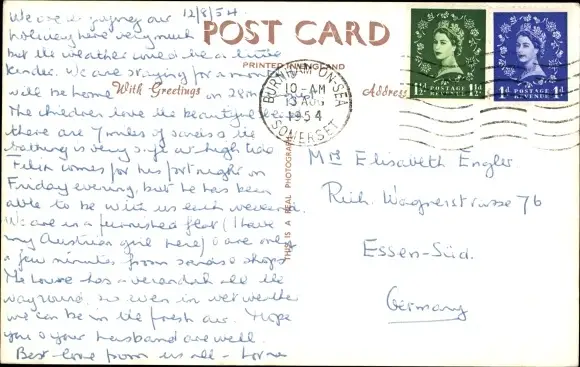 12/8/54.
We are enjoying our
holiday here very much
but the weather could be a little
kinder. We are staying for a month
will be home on 28th
The children love the beautiful
there are 7 miles of sands & the
bathing is very safe at high tide
Felix comes for his fortnight on
Friday evening, but he has been
able to be with us each weekend.
We are in a furnished flat (I have
my Austrian girl here) & are only
a few minutes from sands & shops
The house has a verandah all the
way round, so even in wet weather
we can be in the fresh air. Hope
you & your husband are well.
Best love from us all -
POST CARD
PRINTED IN ENGLAND
With Greetings
Address
THIS IS A REAL PHOTOGRAPH
BURNHAM-ON-SEA
10-AM
13 AUG
1954
SOMERSET
1½d POSTAGE REVENUE 1½d
1d POSTAGE REVENUE 1d
Mrs Elisabeth Engler
Rich. Wagnerstrasse 76
Essen-Süd.
Germany